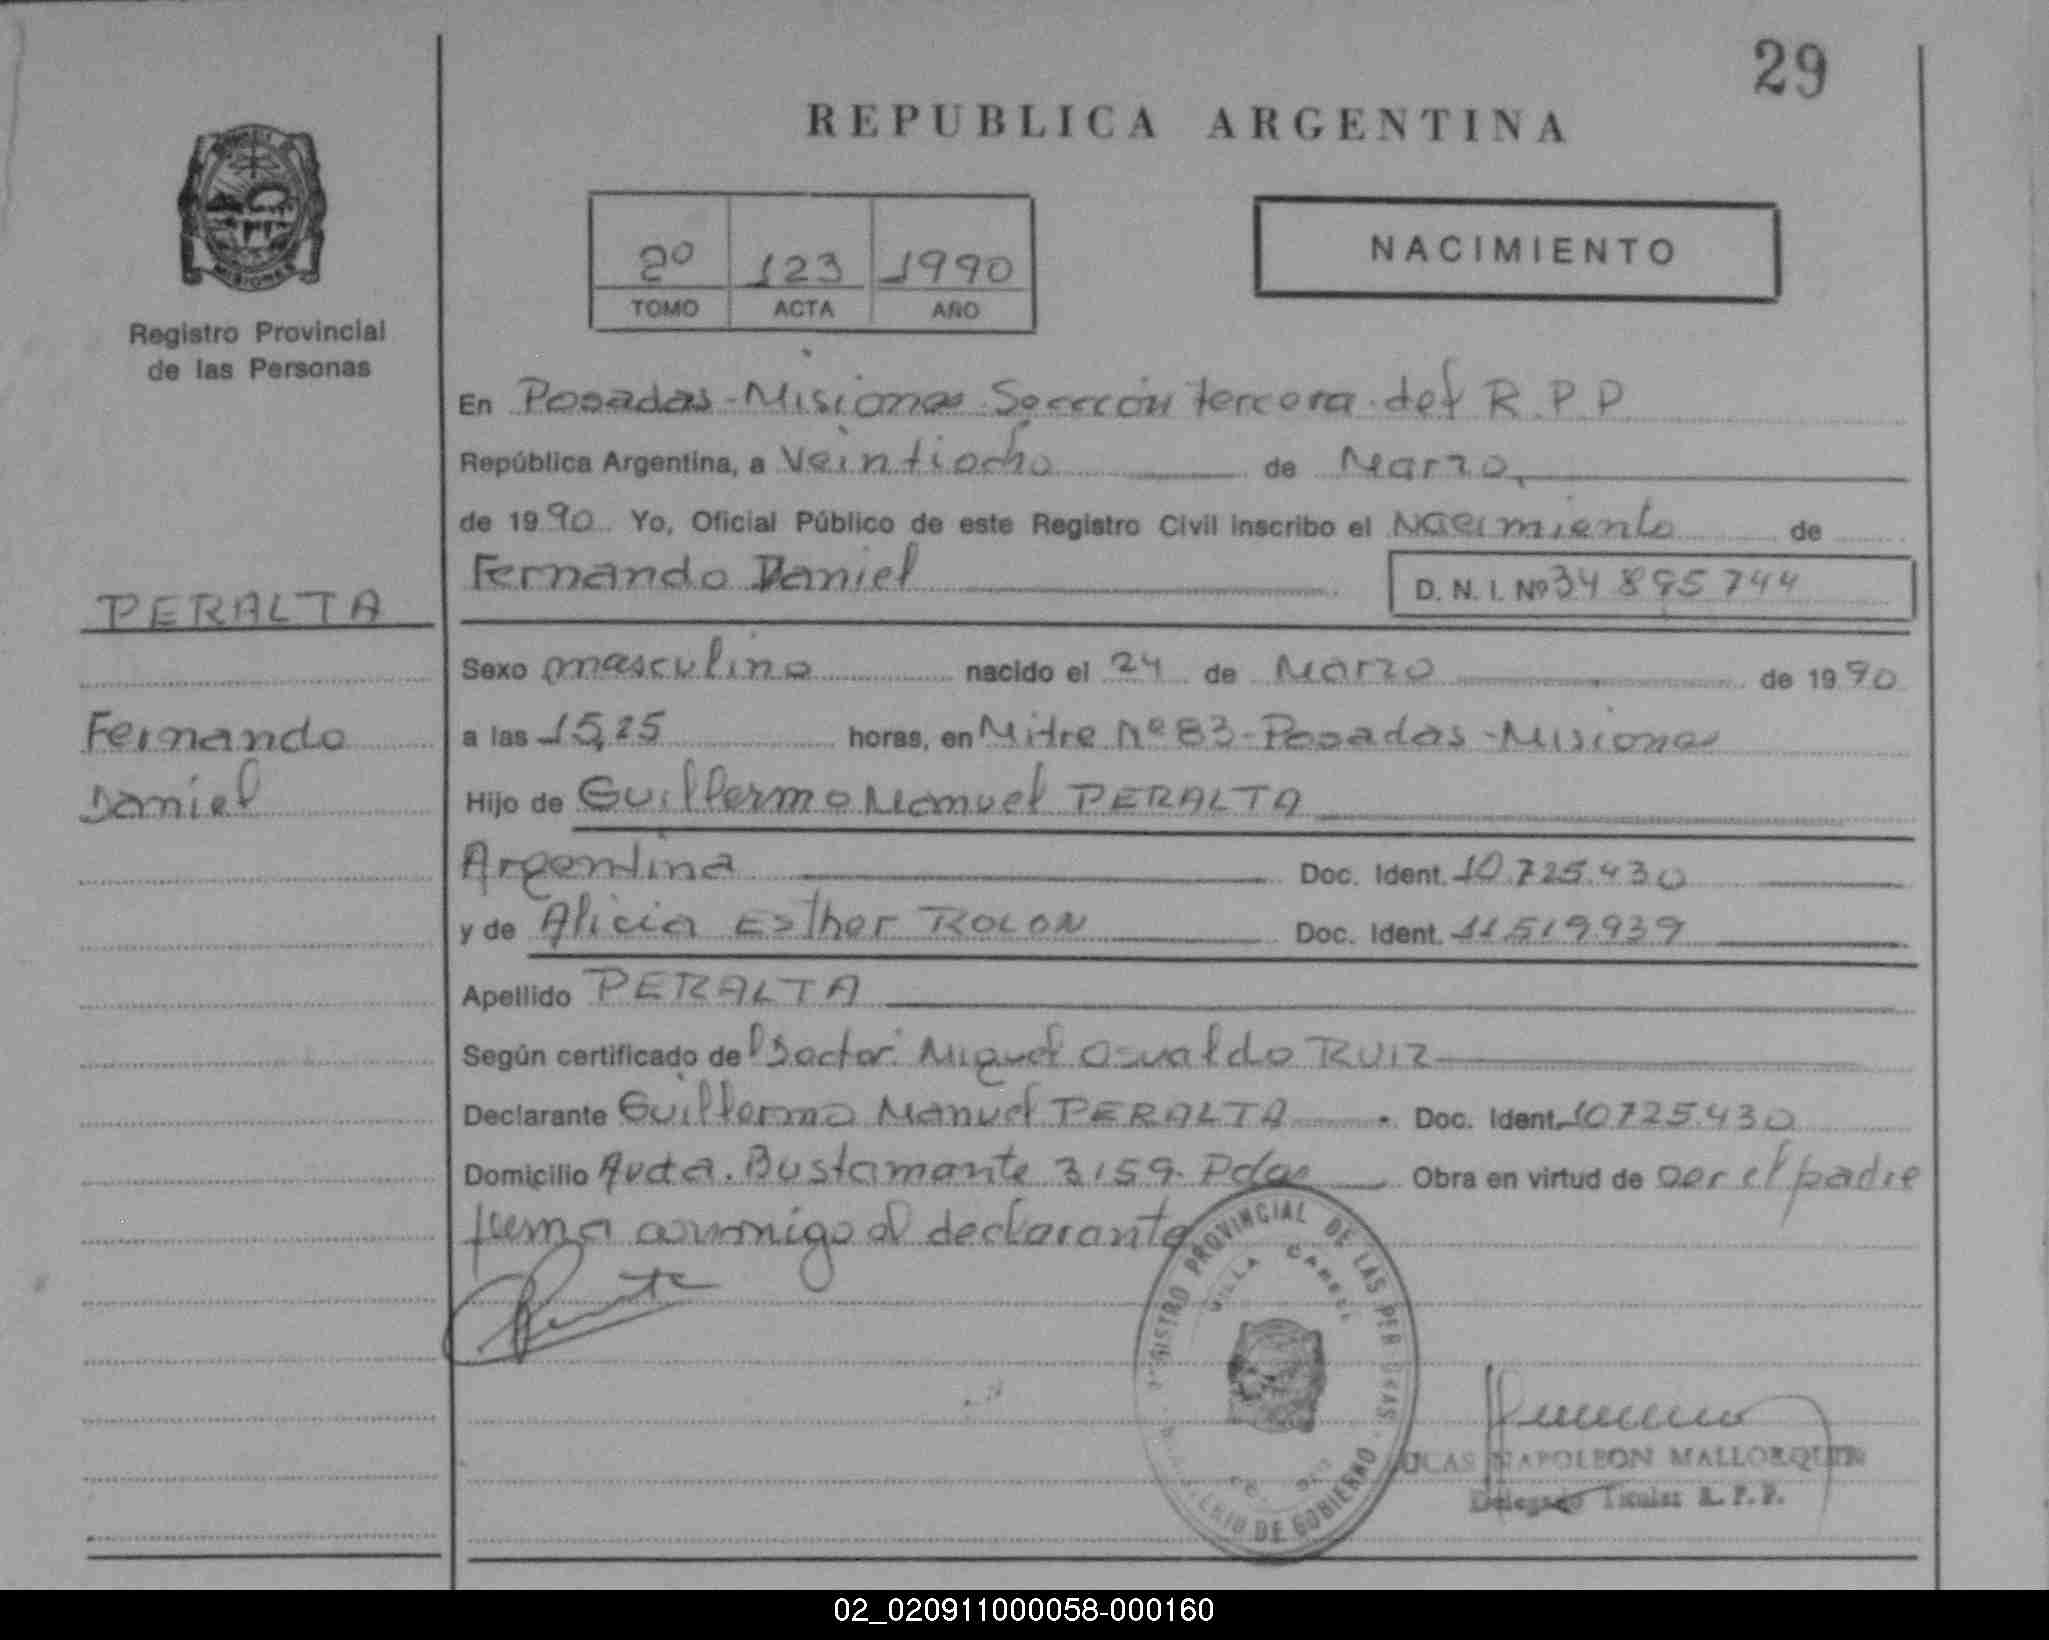 29
REPUBLICA ARGENTINA
2º 123 1990
TOMO ACTA AÑO
NACIMIENTO
MISIONES
Registro Provincial
de las Personas
En Posadas-Misiones Sección tercera del R.P.P
República Argentina, a Veintiocho de Marzo,
de 1990 Yo, Oficial Público de este Registro Civil inscribo el Nacimiento de
Fernando Daniel D. N. I. Nº 34 895 744
PERALTA
Sexo masculino nacido el 24 de Marzo de 1990
Fernando
a las 15,25 horas, en Mitre Nº 83-Posadas-Misiones
Daniel
Hijo de Guillermo Manuel PERALTA
Argentina Doc. Ident. 10.725.430
y de Alicia Esther ROLON Doc. Ident. 11.519.939
Apellido PERALTA
Según certificado del Doctor Miguel Osvaldo RUIZ
Declarante Guillermo Manuel PERALTA Doc. Ident. 10725.430
Domicilio Avda. Bustamante 3159. Pdas Obra en virtud de ser el padre
firma conmigo el declarante
REGISTRO PROVINCIAL DE LAS PERSONAS
VILLA CABELL
DE GOBIERNO
NAPOLEON MALLORQUIN
Delegado Titular R. P. P.
02_020911000058-000160